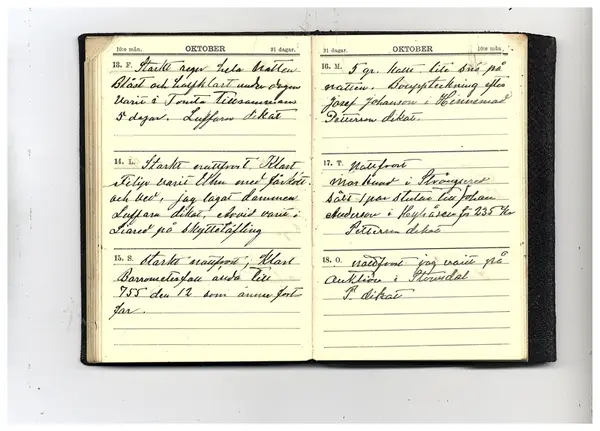 10:e mån. OKTOBER 31 dagar.
13. F. Starkt regn hela natten
Blåst och halfklart under dagen
varit i Tomta tillsammans
5 dagar. Luffarn dikat
14. L. Starkt nattfrost, Klart
Filip varit med
och ved, jag lagat dammen
Luffarn dikat, Arvid varit i
Liared på skyttetäfling
15. S. Starkt nattfrost, Klart
Barometerfall ända till
755 den 12 som ännu fort
far.
31 dagar. OKTOBER 10:e mån.
16. M. 5 gr. lite snö på
natten. Bouppteckning efter
Josef Johanson i
Petterson dikat.
17. T. Nattfrost
marknad i
sålt 1 par stutar till Johan
Anderson i för 235 Kr
Petterson dikat
18. O. nattfrost jag varit på
auktion i
P. dikat